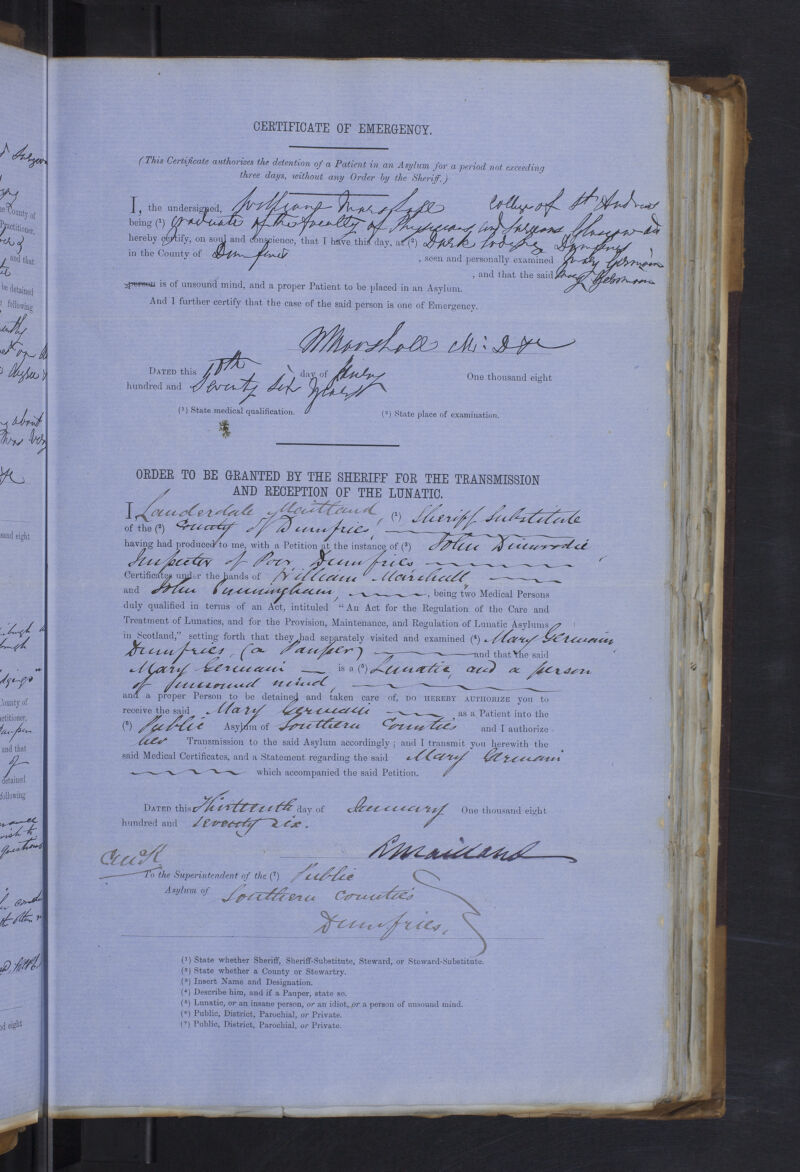 CERTIFICATE OF EMERGENCY.
(This Certificate authorizes the detention of a Patient in an Asylum for a period not exceeding
three days, without any Order by the Sheriff.)
I, the undersigned, William Marshall College of St Andrews
being (1) Graduate of the Faculty of Physicians and Surgeons Glasgow do
hereby certify, on soul and conscience, that I have this day, at (2) Dumfries
in the County of Dumfries , seen and personally examined Mary Germain
, and that the said Mary Germain
person is of unsound mind, and a proper Patient to be placed in an Asylum.
And I further certify that the case of the said person is one of Emergency.
WMarshall M: D &c
DATED this 10th day of One thousand eight
hundred and Seventy Six years
(1) State medical qualification. (2) State place of examination.
ORDER TO BE GRANTED BY THE SHERIFF FOR THE TRANSMISSION
AND RECEPTION OF THE LUNATIC.
I Lauderdale Maitland, (1) Sheriff Substitute
of the (2) County of Dumfries,
having had produced to me, with a Petition at the instance of (3) John Dinwoodie
Inspector of Poor, Dumfries
Certificates under the hands of William Marshall
and John Cunningham, , being two Medical Persons
duly qualified in terms of an Act, intituled "An Act for the Regulation of the Care and
Treatment of Lunatics, and for the Provision, Maintenance, and Regulation of Lunatic Asylums
in Scotland," setting forth that they had separately visited and examined (4) Mary Germain,
Dumfries, (a Pauper) and that the said
Mary Germain is a (5) Lunatic, and a person
of unsound mind,
and a proper Person to be detained and taken care of, DO HEREBY AUTHORIZE you to
receive the said Mary Germain as a Patient into the
(6) Public Asylum of Southern Counties and I authorize
her Transmission to the said Asylum accordingly; and I transmit you herewith the
said Medical Certificates, and a Statement regarding the said Mary Germain
which accompanied the said Petition.
DATED this Thirteenth day of January One thousand eight
hundred and seventy six.
To the Superintendent of the (7) Public
Asylum of Southern Counties
Dumfries,
(1) State whether Sheriff, Sheriff-Substitute, Steward, or Steward-Substitute.
(2) State whether a County or Stewartry.
(3) Insert Name and Designation.
(4) Describe him, and if a Pauper, state so.
(5) Lunatic, or an insane person, or an idiot, or a person of unsound mind.
(6) Public, District, Parochial, or Private.
(7) Public, District, Parochial, or Private.